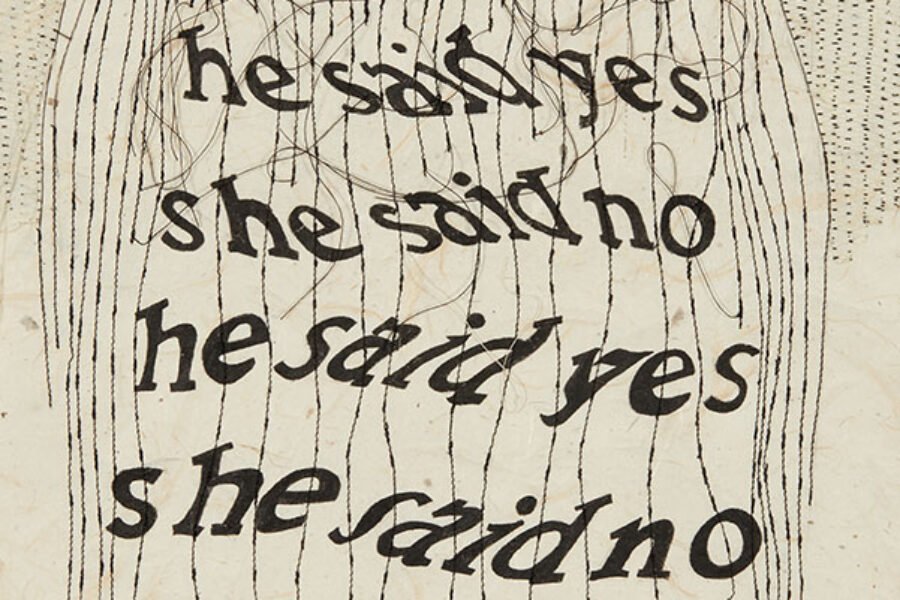 he said yes
she said no
he said yes
she said no